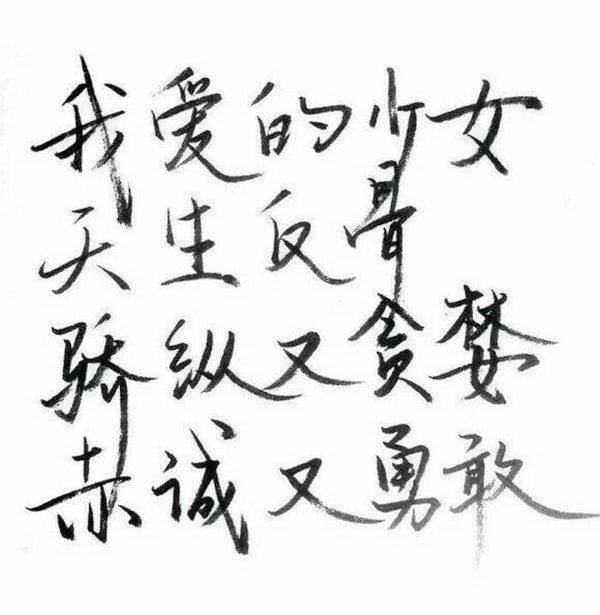 我爱的少女
天生反骨
骄纵又贪婪
赤诚又勇敢